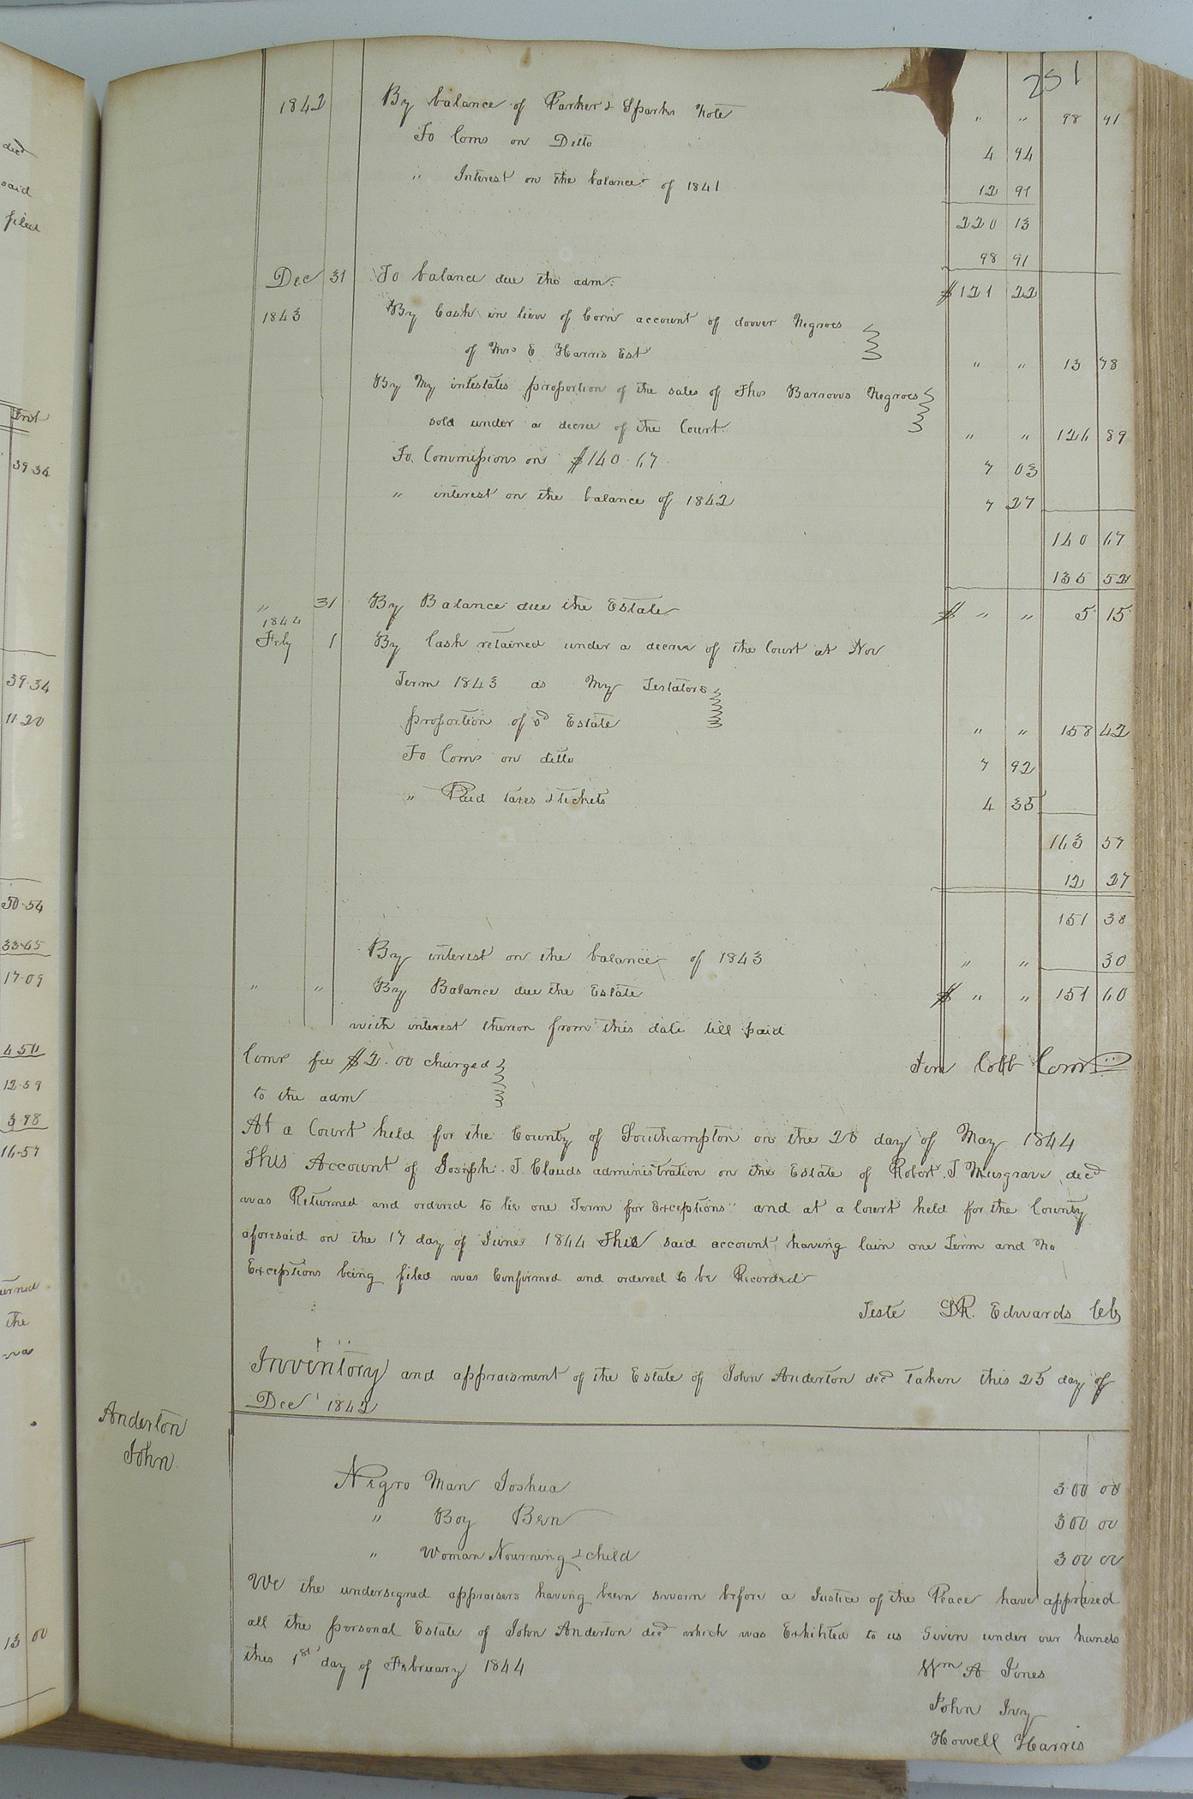 251
1842 By balance of Parker & Sparks Note " " 98 91
To Coms on Ditto 4 94
" Interest on the balance of 1841 12 91
220 13
98 91
Dec 31 To balance due the adm: $121 22
1843 By Cash in lieu of Corn account of dower Negroes
of Mrs E Harris Est " " 13 78
By My intestates proportion of the sales of Thos Barrows Negroes
sold under a decree of the Court " " 126 89
To Commissions on $140.67 7 03
" interest on the balance of 1842 7 27
140 67
135 52
" 31 By Balance due the Estate $ " " 5 15
1844
Feby 1 By Cash retained under a decree of the Court at Nov
Term 1843 as My Testators
proportion of sd Estate " " 158 42
To Coms on ditto 7 92
" Paid taxes & tickets 4 35
163 57
12 27
151 30
By interest on the balance of 1843 " " 30
" " By Balance due the Estate $ " " 151 60
with interest thereon from this date till paid
Coms fee $2.00 charged Cobb Comr
to the adm
At a Court held for the County of Southampton on the 20 day of May 1844
This Account of Joseph T. Clauds administration on the Estate of Robert T Musgrave decd
was Returned and ordered to lie one Term for Exceptions and at a Court held for the County
aforesaid on the 17 day of June 1844 This said account having lain one Term and No
Exceptions being filed was Confirmed and ordered to be Recorded
Teste Edwards
Inventory and appraisment of the Estate of John Anderton decd Taken this 25 day of
Dec 1842
Anderton
John
Negro Man Joshua 300 00
" Boy Ben 300 00
" Woman & child 300 00
We the undersigned appraisers having been sworn before a Justice of the Peace have appraized
all the personal Estate of John Anderton decd which was Exhibited to us Given under our hands
this 1st day of February 1844 Wm A Jones
John Ivy
Howell Harris
decd
said
filed
39.34
39.34
11.20
50.54
33.45
17.09
12.59
3 98
16.57
the
was
13 00